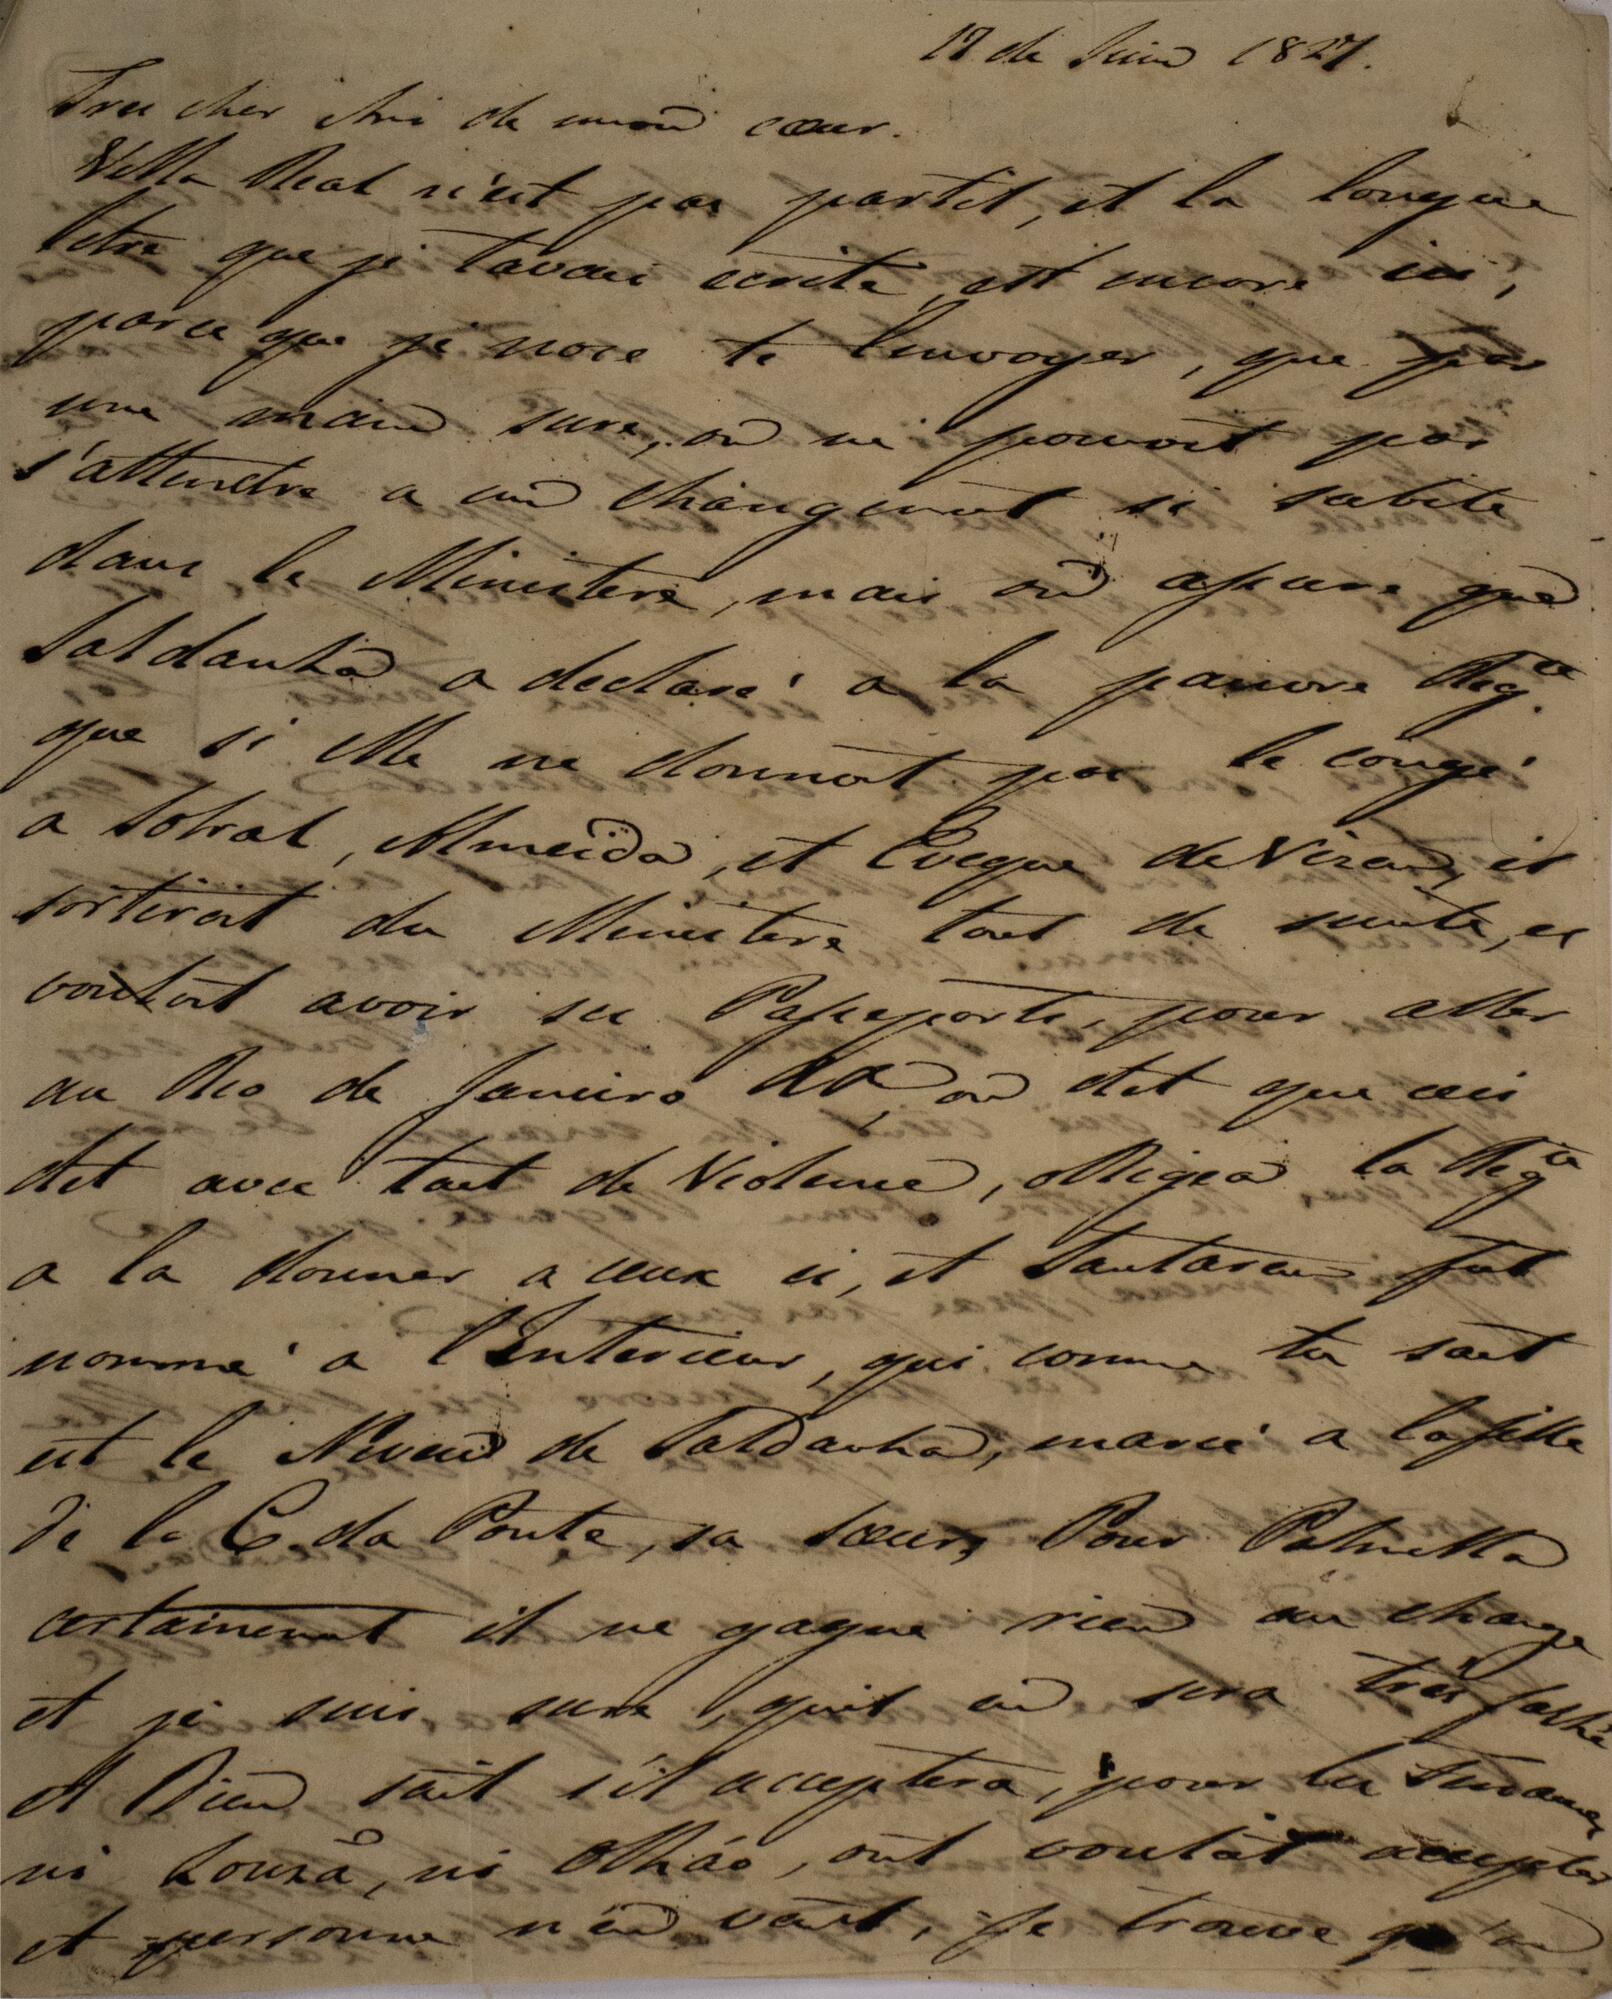 17 de Juin 1827.
Tres cher Ami de mon cœur.
Villa Real n'est pas partit, et la longue
letre que je t'avais ecrite, est encore ici,
parce que je nose te l'envoyer, que par
une main sure, on ne pouvoit pas
s'attendre a un changement si subite
dans le Ministere, mais on assure que
Saldanha a declaré a la pauvre Reg.te
que si elle ne donnoit pas le congé
a Sobral, Almeida, et Eveque de Vizeu, il
sortiroit du Ministere tout de suite, et
vouloit avoir ses Passeports, pour aller
au Rio de Janeiro &a, on dit que ceci
dit avec tant de Violence, obligea la Reg.te
a la donner a ceux ci, et Santarem fut
nommé a l'Interieur, qui comme tu sait
est le Neveu de Saldanha, marié a la fille
de la C. da Ponte, sa sœur, Pour Palmella
certainement il ne gagne rien au change
et je suis sure, qu'il en sera très faché
et Dieu sait s'il acceptera, pour les Finances
ni Louzã, ni Olhão, ont voulût accepter
et personne n'en veut, je trouve qu'on